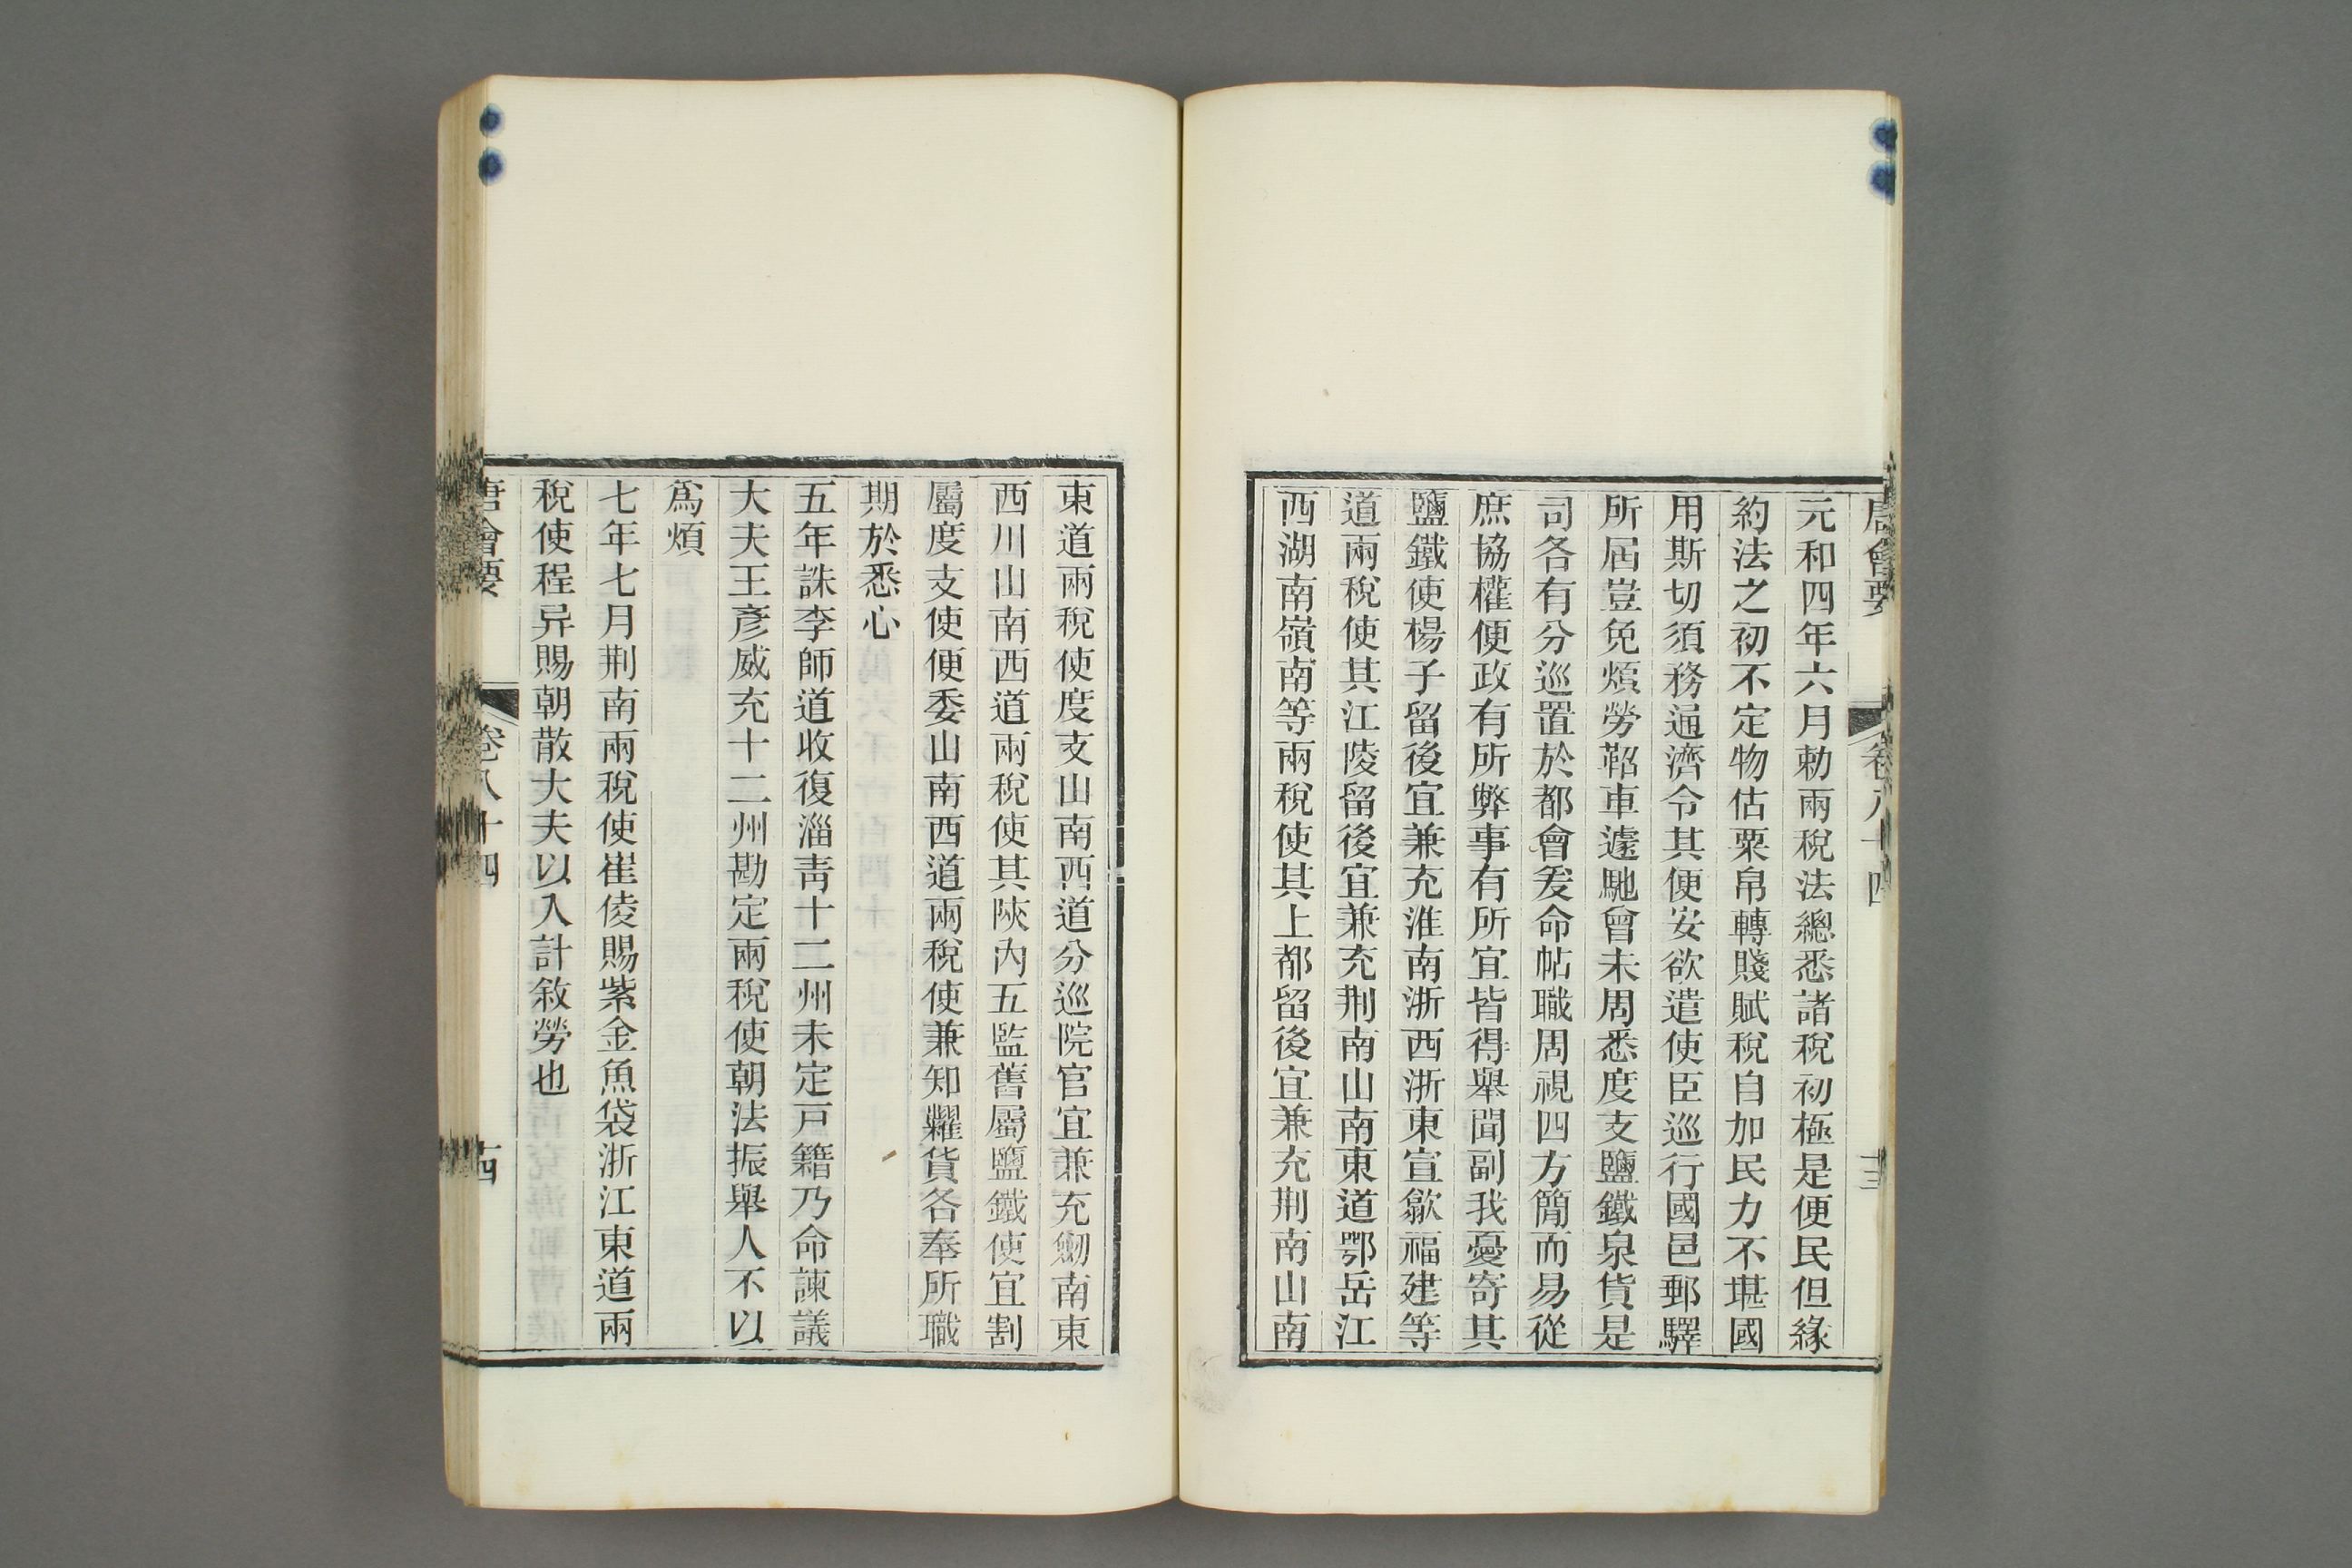 唐會要 卷八十四 十三
元和四年六月勅兩稅法總悉諸稅初極是便民但緣
約法之初不定物估粟帛轉賤賦稅自加民力不堪國
用斯切須務通濟令其便安欲遣使臣巡行國邑郵驛
所屆豈免煩勞軺車遽馳曾未周悉度支鹽鐵泉貨是
司各有分巡置於都會爰命帖職周視四方簡而易從
庶協權便政有所弊事有所宜皆得舉聞副我憂寄其
鹽鐵使楊子留後宜兼充淮南浙西浙東宣歙福建等
道兩稅使其江陵留後宜兼充荆南山南東道鄂岳江
西湖南嶺南等兩稅使其上都留後宜兼充荆南山南
東道兩稅使度支山南西道分巡院官宜兼充劒南東
西川山南西道兩稅使其陝內五監舊屬鹽鐵使宜割
屬度支使便委山南西道兩稅使兼知糶貨各奉所職
期於悉心
五年誅李師道收復淄青十二州未定戸籍乃命諫議
大夫王彥威充十二州勘定兩稅使朝法振舉人不以
爲煩
七年七月荆南兩稅使崔倰賜紫金魚袋浙江東道兩
稅使程异賜朝散大夫以入計敘勞也
唐會要 卷八十四 十四